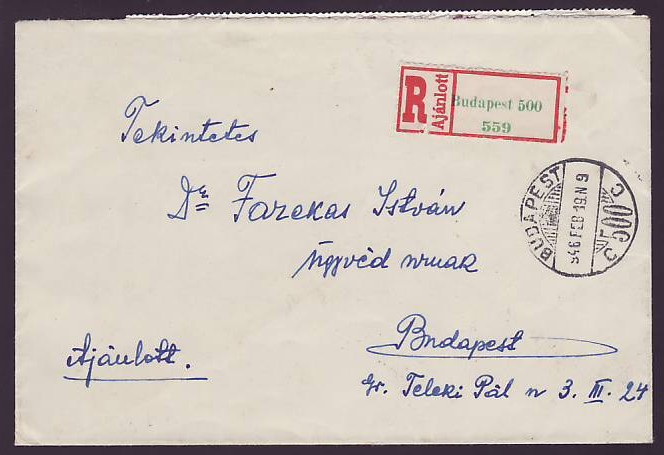 R Ajánlott Budapest 500
559
Tekintetes
BUDAPEST 500
946 FEB 19. N 9
C C
Dr Fazekas István
ügyvéd urnak
Budapest
Ajánlott.
Gr. Teleki Pál u 3. III. 24